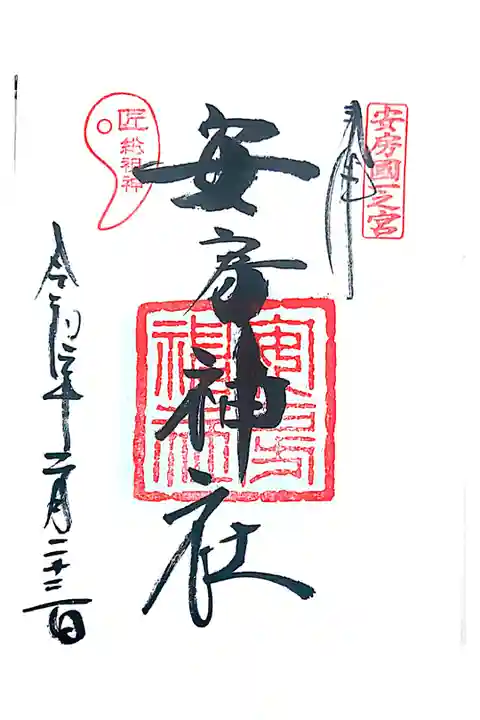 安房國一之宮
奉拝
安房神社
安房神社
匠総祖神
令和二年十二月二十三日